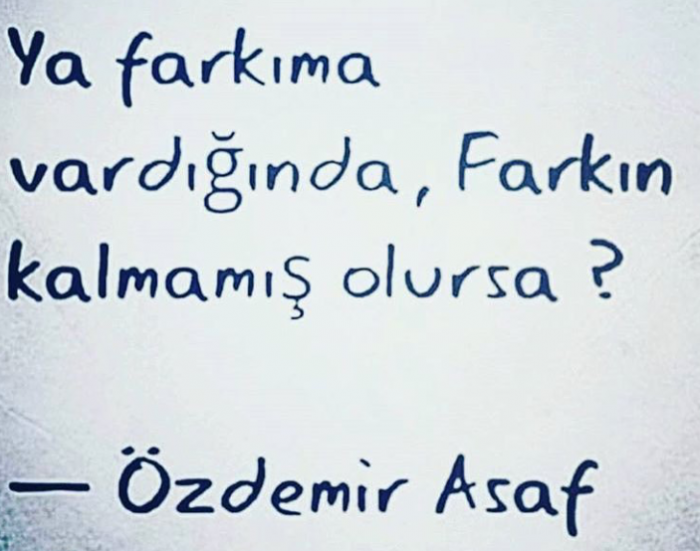 Ya farkıma
vardığında, Farkın
kalmamış olursa ?
— Özdemir Asaf